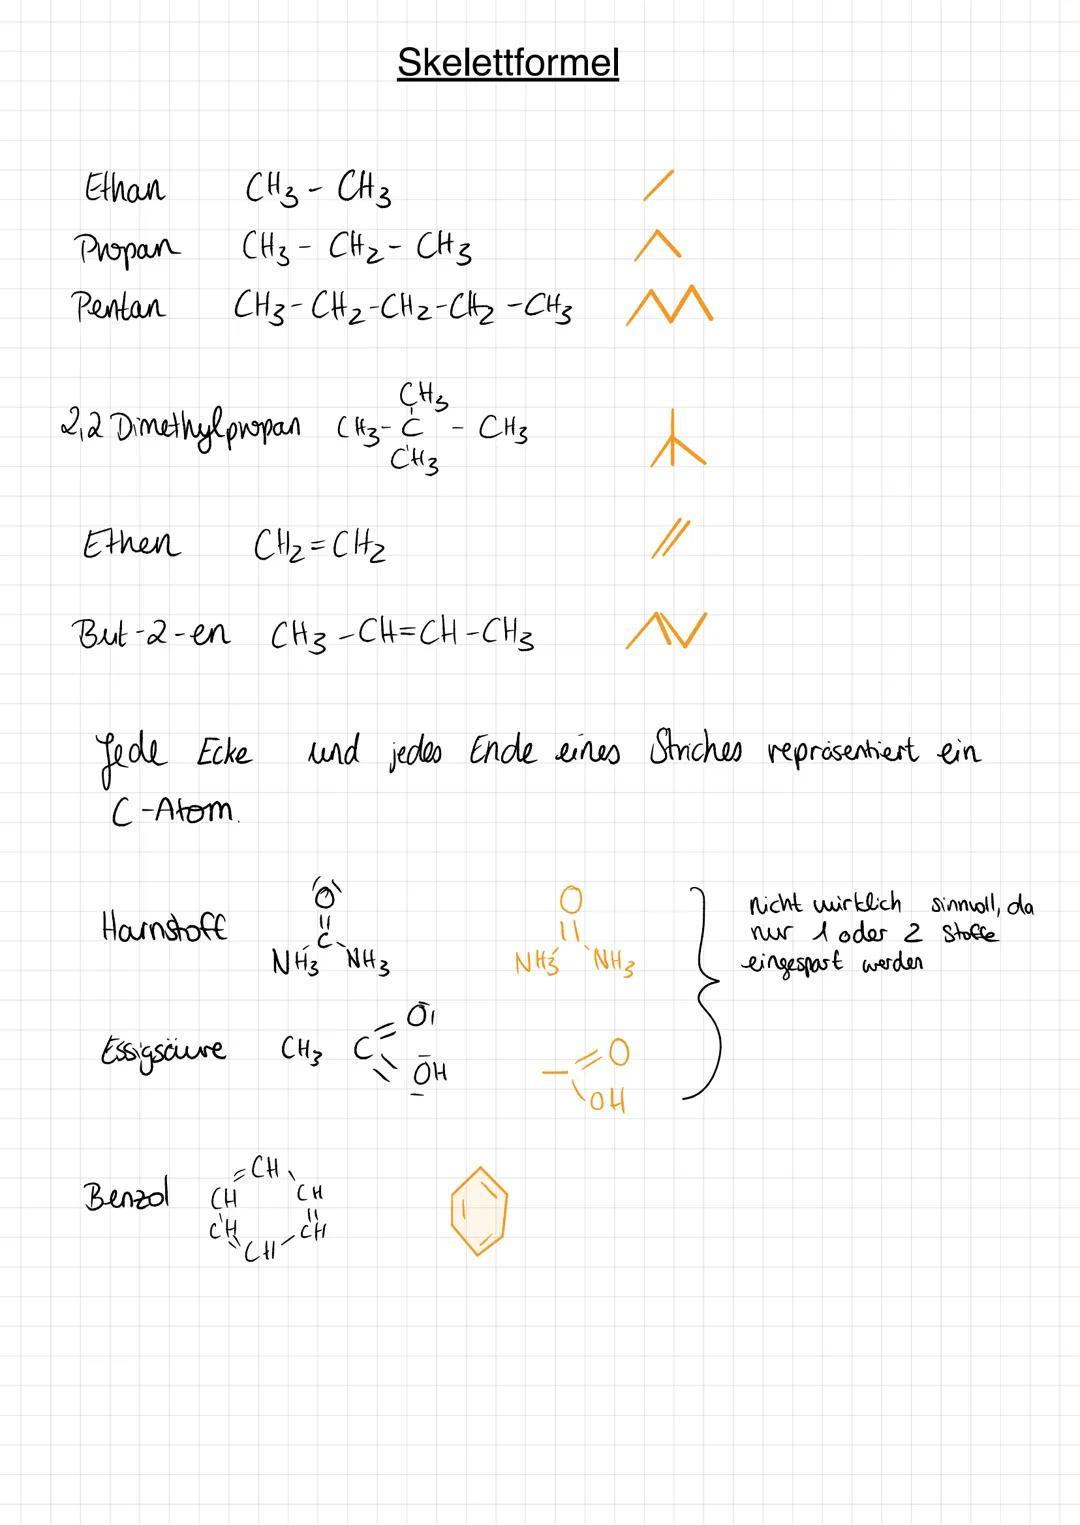 Skelettformel
Ethan CH3 - CH3
Propan CH3 - CH2 - CH3
Pentan CH3-CH2-CH2-CH2-CH3
CH3
2,2 Dimethylpropan CH3-C - CH3
CH3
Ethen CH2=CH2
But-2-en CH3-CH=CH-CH3
Jede Ecke und jedes Ende eines Striches repräsentiert ein
C-Atom.
O O
Harnstoff C
NH3 NH3 NH3 NH3
nicht wirklich sinnvoll, da
nur 1 oder 2 Stoffe
eingespart werden
O O
Essigsäure CH3 C
OH OH
CH
Benzol CH CH
CH CH
CH